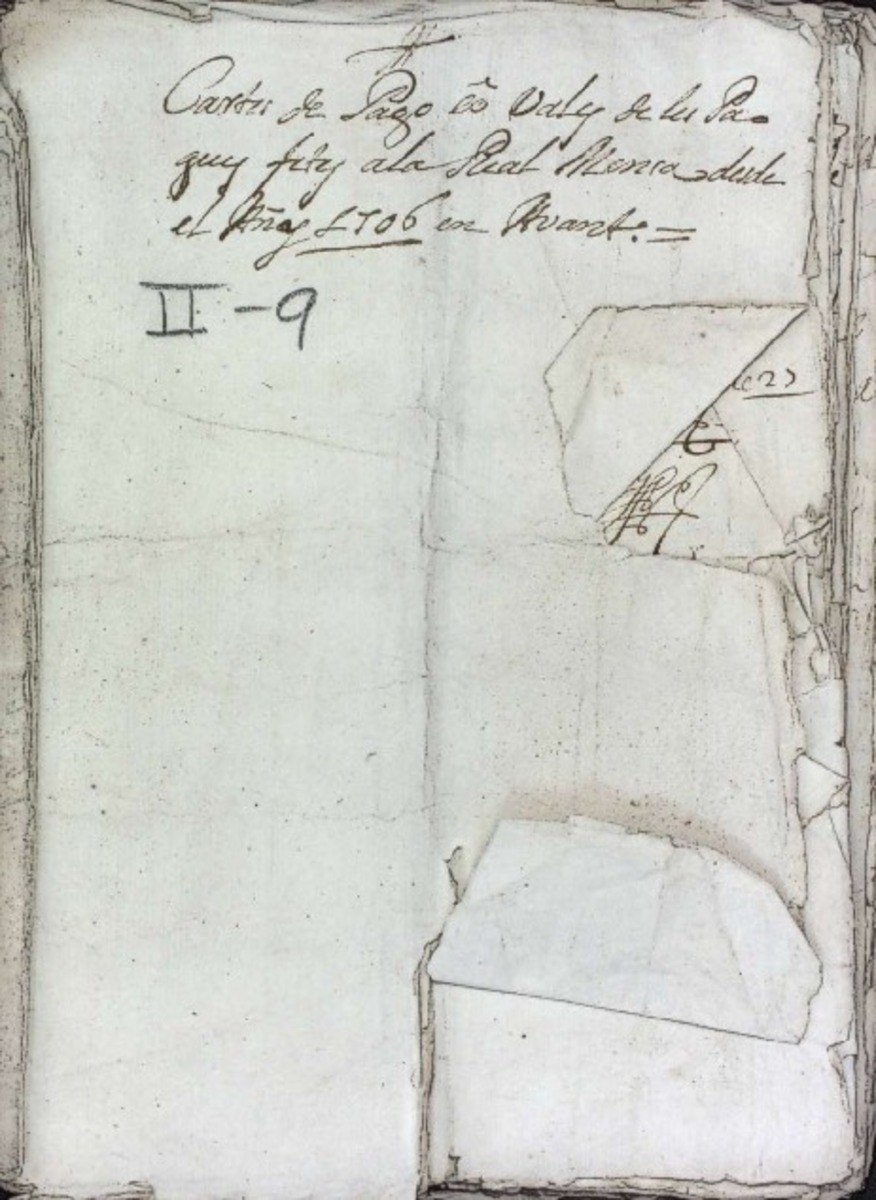 Cartas de Pago cô Vales de las Pa-
gas fhs a la Real Mensa desde
el Año 1706 en Avante. =
II - 9